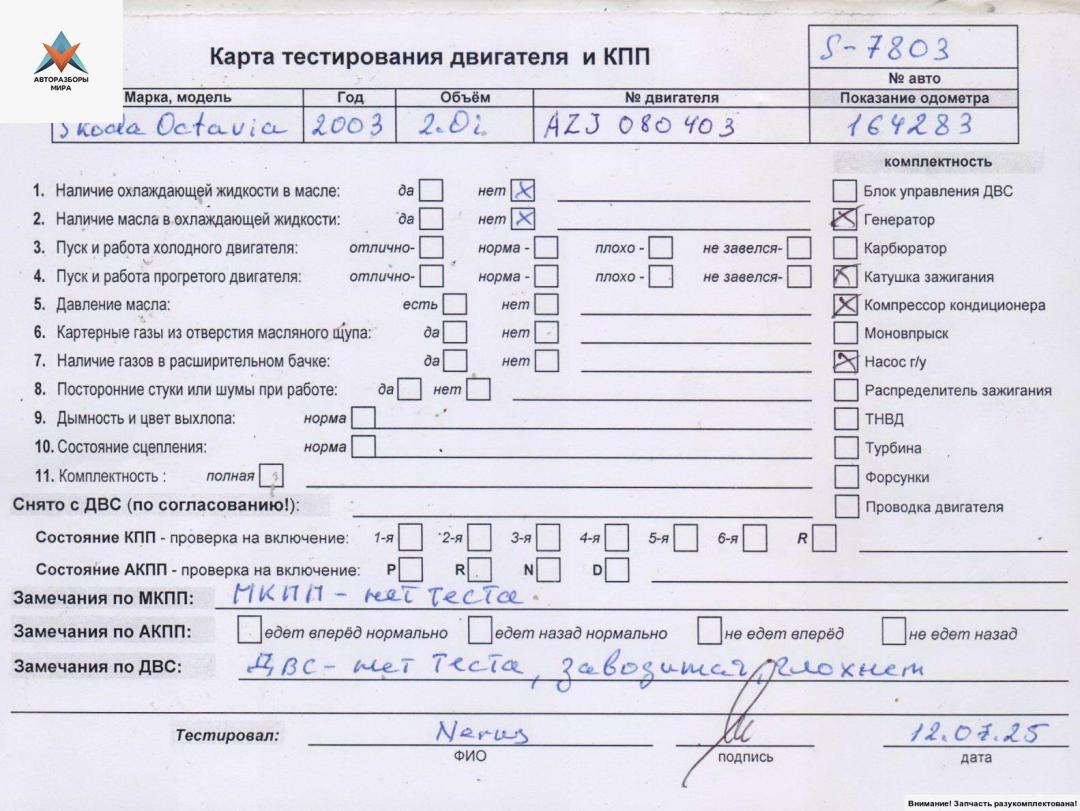 АВТОРАЗБОРЫ
МИРА
Карта тестирования двигателя и КПП
S-7803
№ авто
Марка, модель Год Объём № двигателя Показание одометра
Skoda Octavia 2003 2.0i AZJ 080403 164283
комплектность
1. Наличие охлаждающей жидкости в масле: да нет X
Блок управления ДВС
2. Наличие масла в охлаждающей жидкости: да нет X
X Генератор
3. Пуск и работа холодного двигателя: отлично- норма - плохо - не завелся-
Карбюратор
4. Пуск и работа прогретого двигателя: отлично- норма - плохо - не завелся-
X Катушка зажигания
5. Давление масла: есть нет
X Компрессор кондиционера
6. Картерные газы из отверстия масляного щупа: да нет
Моновпрыск
7. Наличие газов в расширительном бачке: да нет
X Насос г/у
8. Посторонние стуки или шумы при работе: да нет
Распределитель зажигания
9. Дымность и цвет выхлопа: норма
ТНВД
10. Состояние сцепления: норма
Турбина
11. Комплектность : полная
Форсунки
Снято с ДВС (по согласованию!):
Проводка двигателя
Состояние КПП - проверка на включение: 1-я 2-я 3-я 4-я 5-я 6-я R
Состояние АКПП - проверка на включение: P R N D
Замечания по МКПП: МКПП - нет теста
Замечания по АКПП: едет вперёд нормально едет назад нормально не едет вперёд не едет назад
Замечания по ДВС: ДВС - нет теста, заводится, глохнет
Тестировал: 12.07.25
ФИО подпись дата
Внимание! Запчасть разукомплектована!